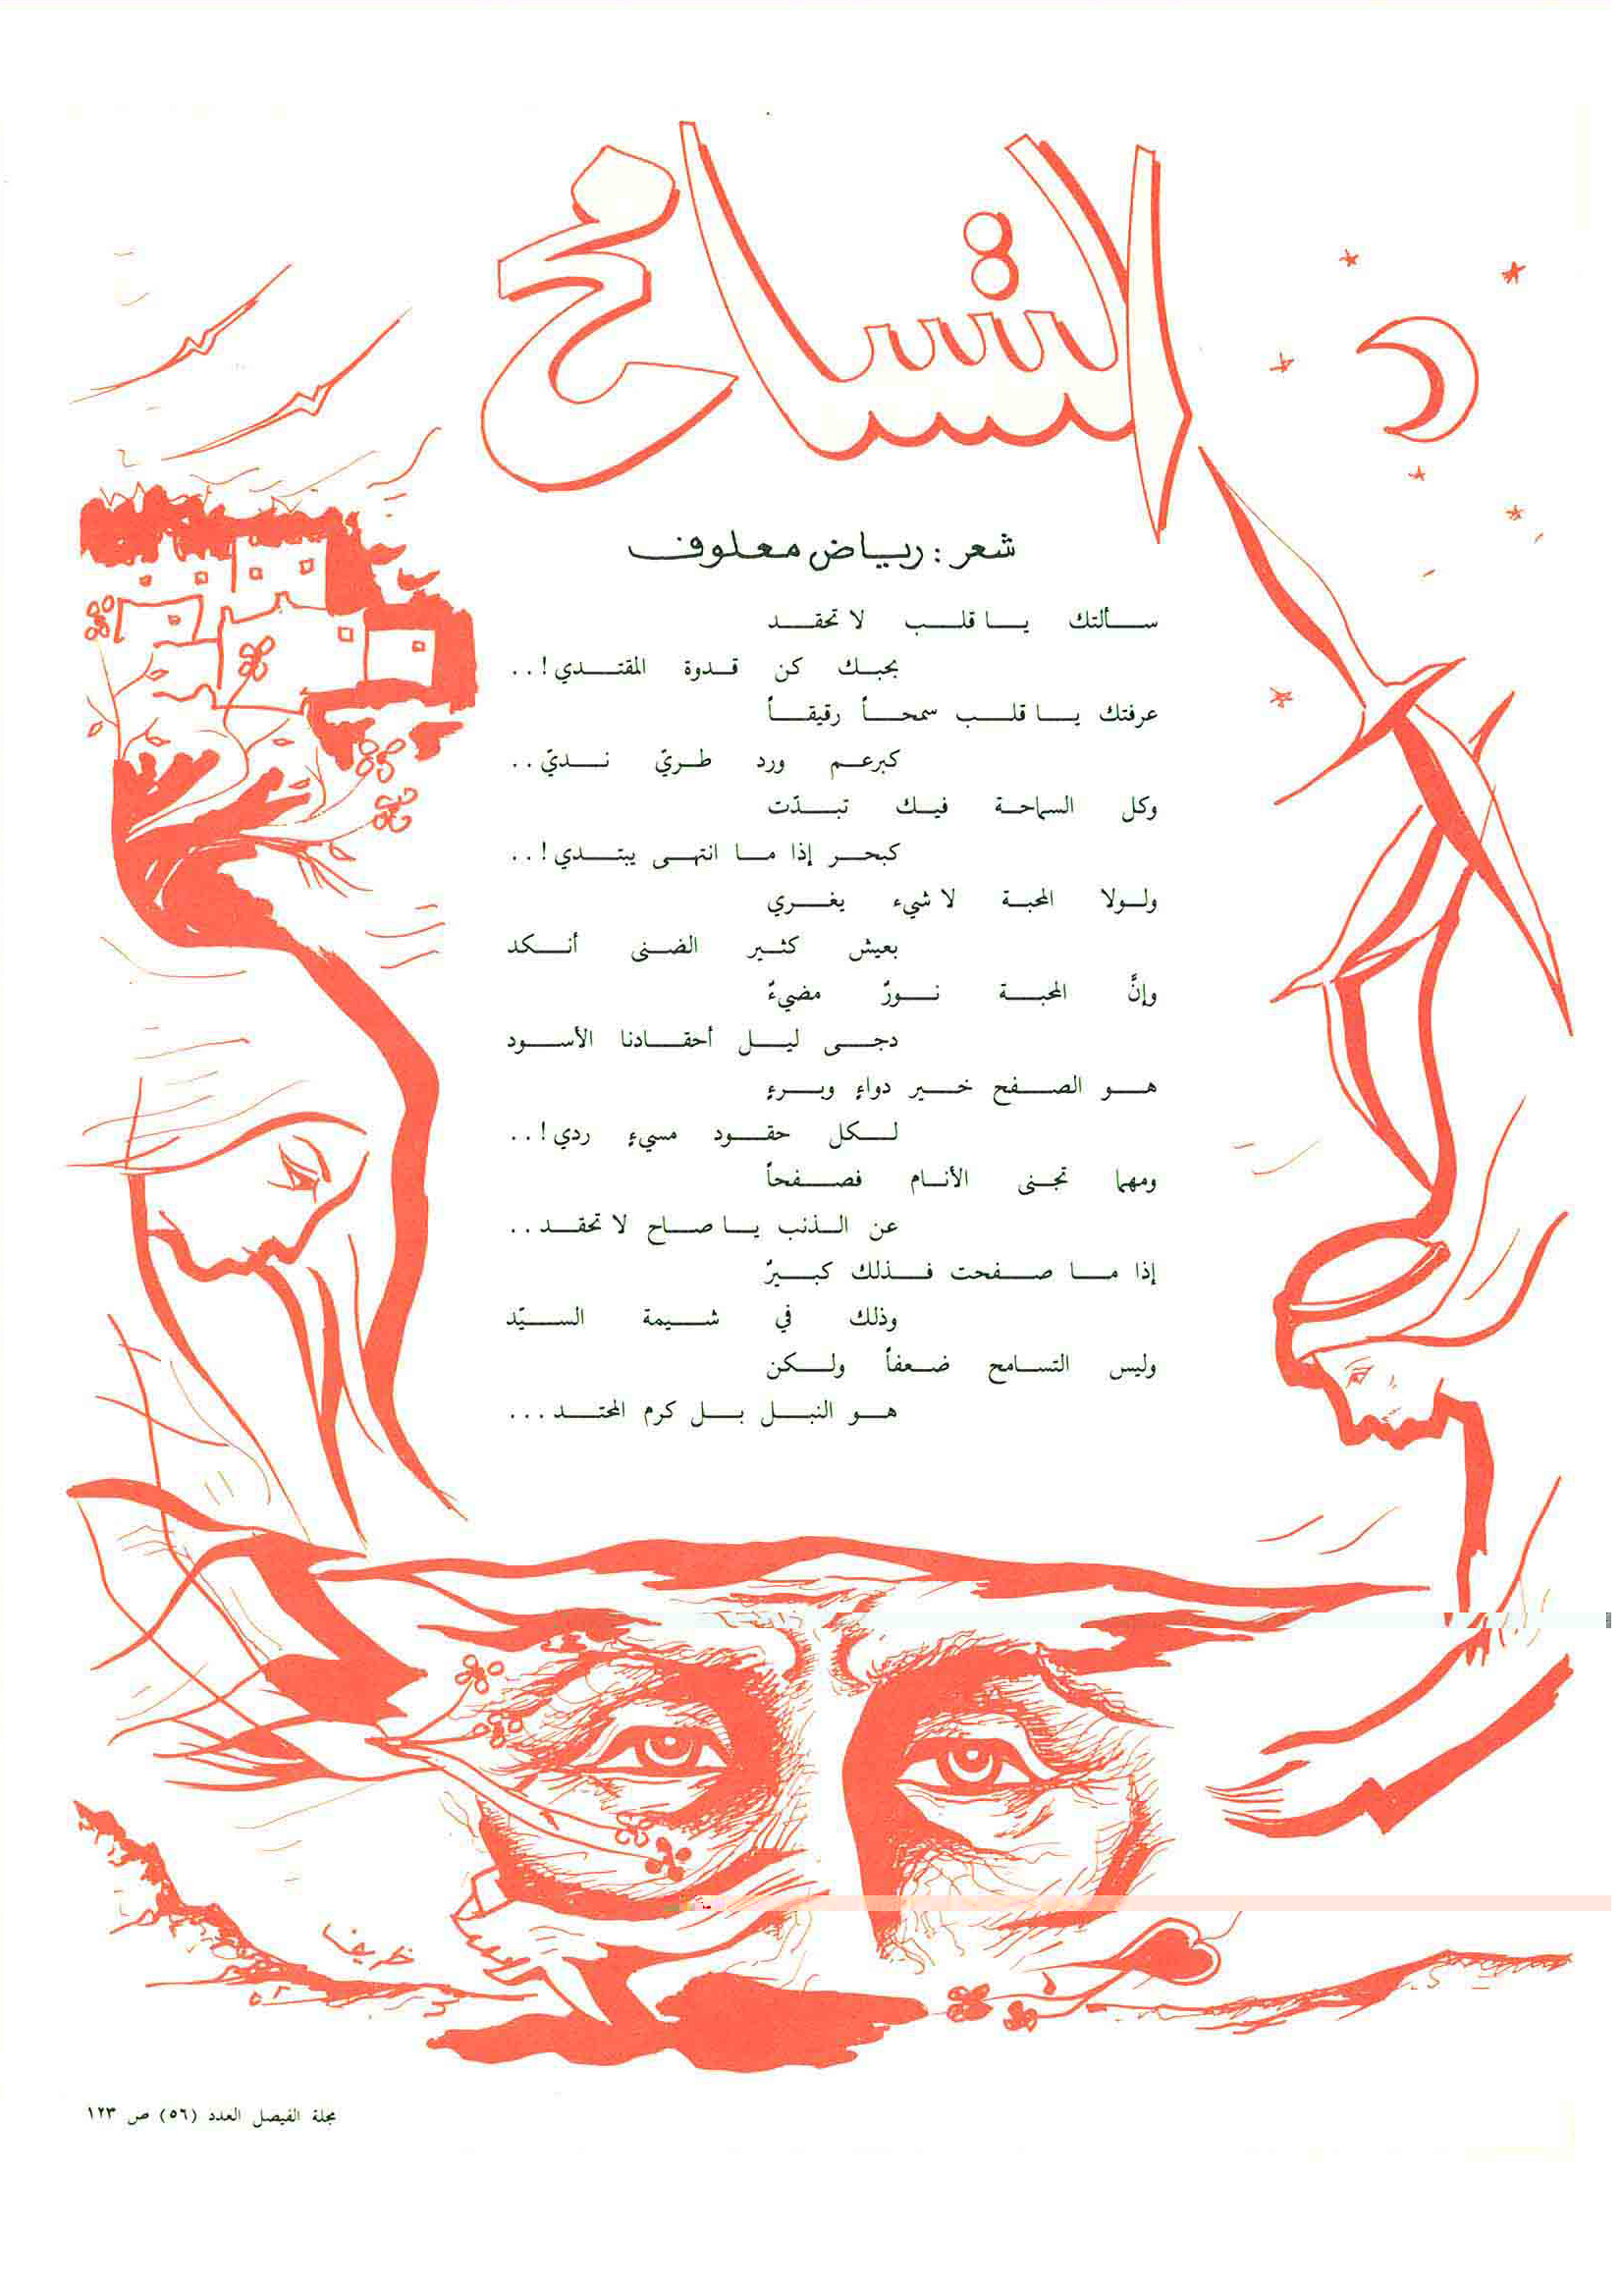 التسامح
شعر : رياض معلوف
سألتك يا قلب لا تحقد
بحبك كن قدوة المقتدي ! ..
عرفتك يا قلب سمحاً رقيقاً
كبرعم ورد طريّ نديّ ..
وكل السماحة فيك تبدّت
كبحر إذا ما انتهى يبتدي ! ..
ولولا المحبة لا شيء يغري
بعيش كثير الضنى أنكد
وإنَّ المحبة نورٌ مضيءٌ
دجى ليل أحقادنا الأسود
هو الصفح خير دواءٍ وبرءٍ
لكل حقود مسيءٍ ردي ! ..
ومهما تجنى الأنام فصفحاً
عن الذنب يا صاح لا تحقد ..
إذا ما صفحت فذلك كبيرٌ
وذلك في شيمة السيّد
وليس التسامح ضعفاً ولكن
هو النبل بل كرم المحتد ...
مجلة الفيصل العدد (٥٦) ص ١٢٣